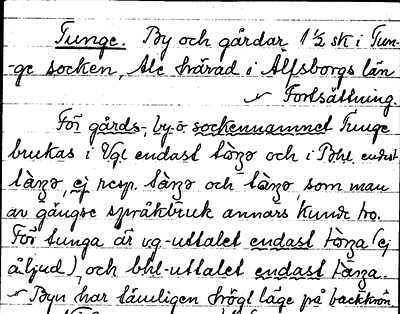 Tunge. By och gårdar 1 ½ sk i Tun-
-ge socken, Ale härad i Älfsborgs län
Fortsättning.
För gårds-, by- o sockennamnet Tunge
brukas i Vgl endast och i Bhl. endast
ej resp. och som man
av gängse språkbruk annars kunde tro.
För tunga är vg-uttalet endast (ej
åljud), och bhl-uttalet endast
Byn har tämligen högt läge på backkrön